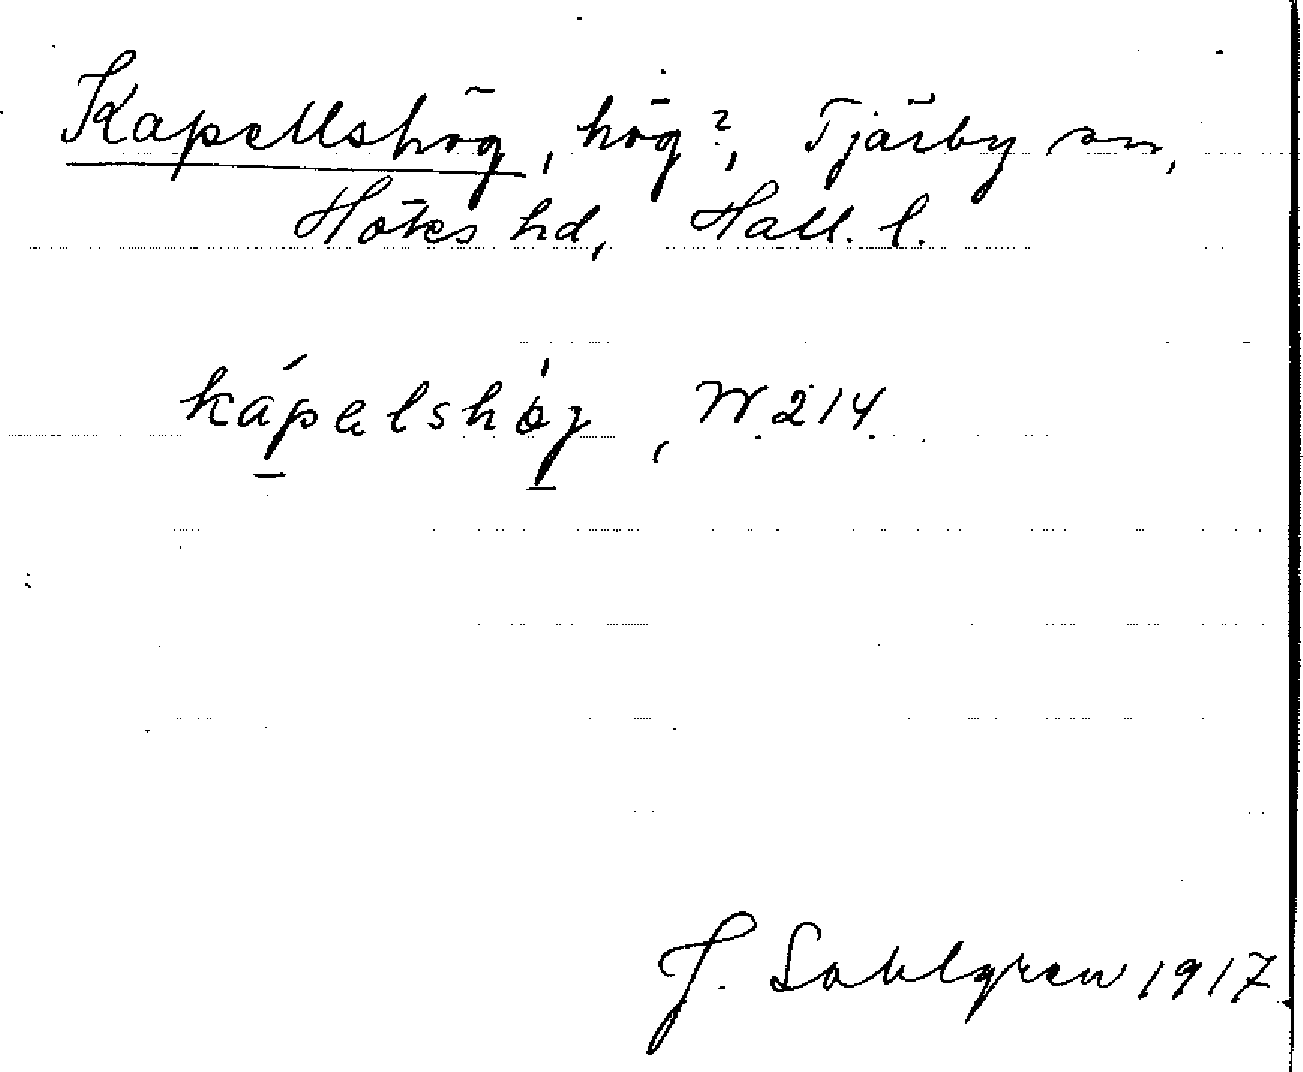 Kapellshög, hög?, Tjärby sn,
Höks hd, Hall. l.
kápalshǿj, W. 214.
J. Sahlgren 1917.